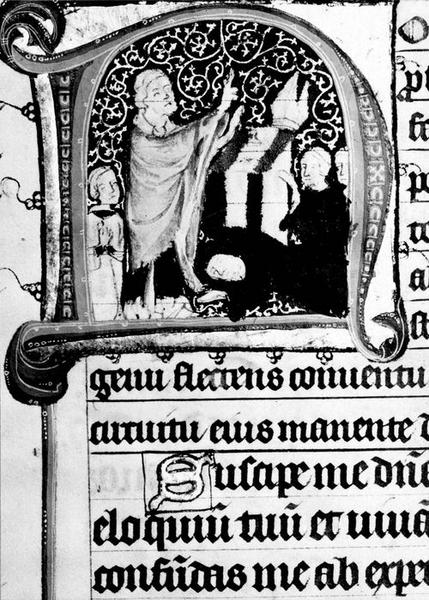 genu flectens conuentu
circuitu eius manente
Suscipe me dñe
eloquiū tuū et uiua
confūdas me ab expe